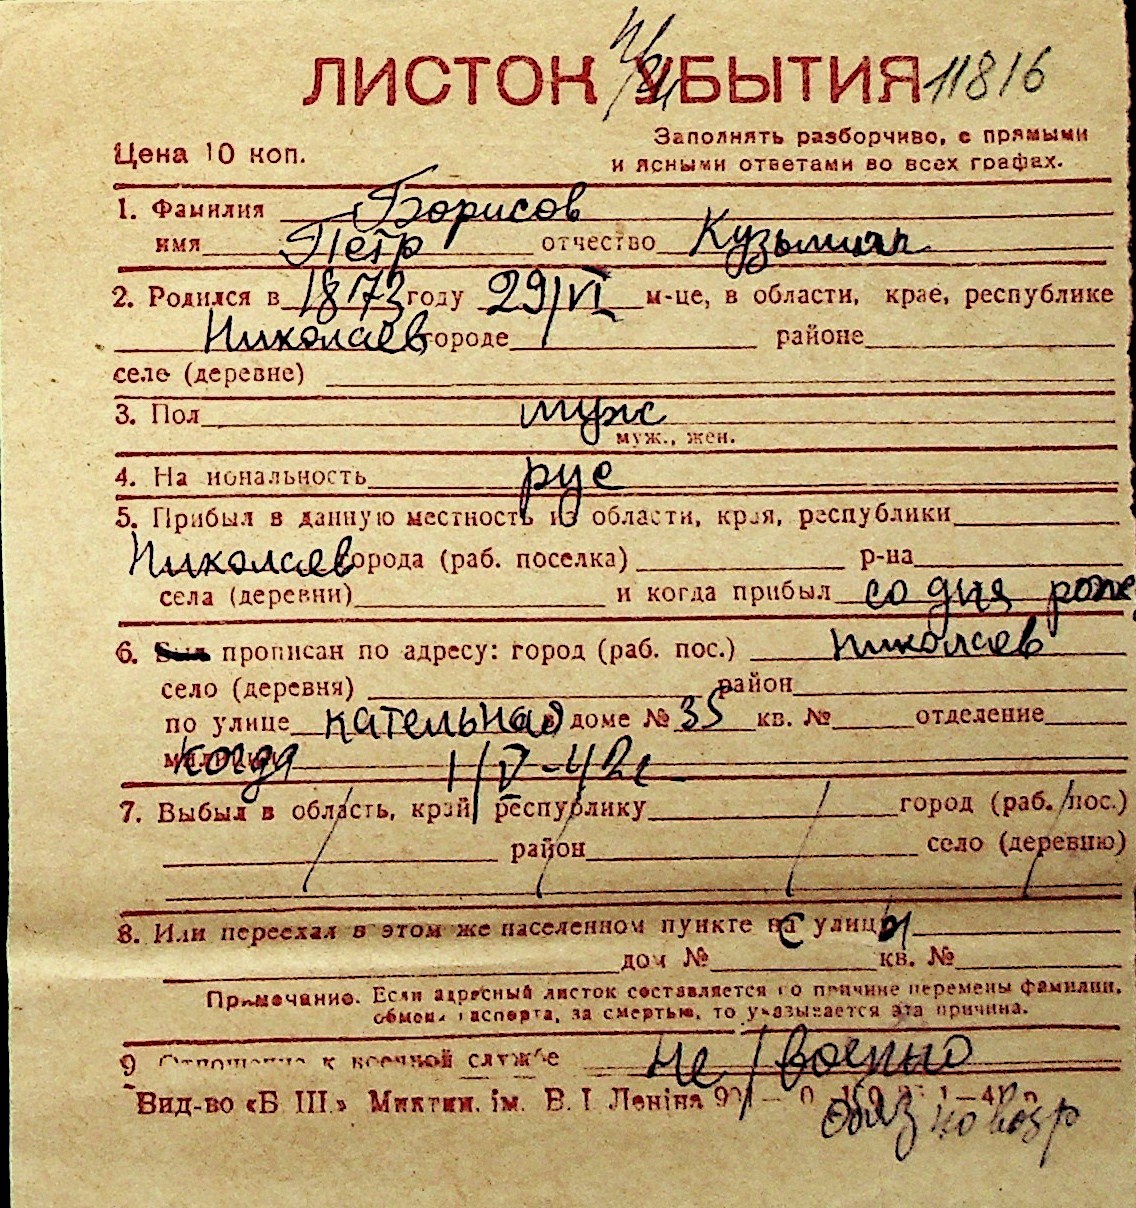 ЛИСТОК УБЫТИЯ 11816
Цена 10 коп.
Заполнять разборчиво, с прямыми
и ясными ответами во всех графах.
1. Фамилия Борисов
имя Петр отчество Кузьмич
2. Родился в 1873 году 29/VI м-це, в области, крае, республике
Николаев городе районе
селе (деревне)
3. Пол муж
муж., жен.
4. Национальность рус
5. Прибыл в данную местность из области, края, республики
Николаев города (раб. поселка) р-на
села (деревни) и когда прибыл со дня рож
6. Был прописан по адресу: город (раб. пос.) Николаев
село (деревня) район
по улице кательная в доме № 35 кв. № отделение
милиции когда 1/V-42г
7. Выбыл в область, край, республику город (раб. пос.)
район село (деревню)
8. Или переехал в этом же населенном пункте с улицы
дом № кв. №
Примечание. Если адресный листок составляется по причине перемены фамилии,
обмена паспорта, за смертью, то указывается эта причина.
9 Отношение к военной службе не/военно
Вид-во «Б Ш.» Миктип. ім. В. І Леніна
обяз по возр